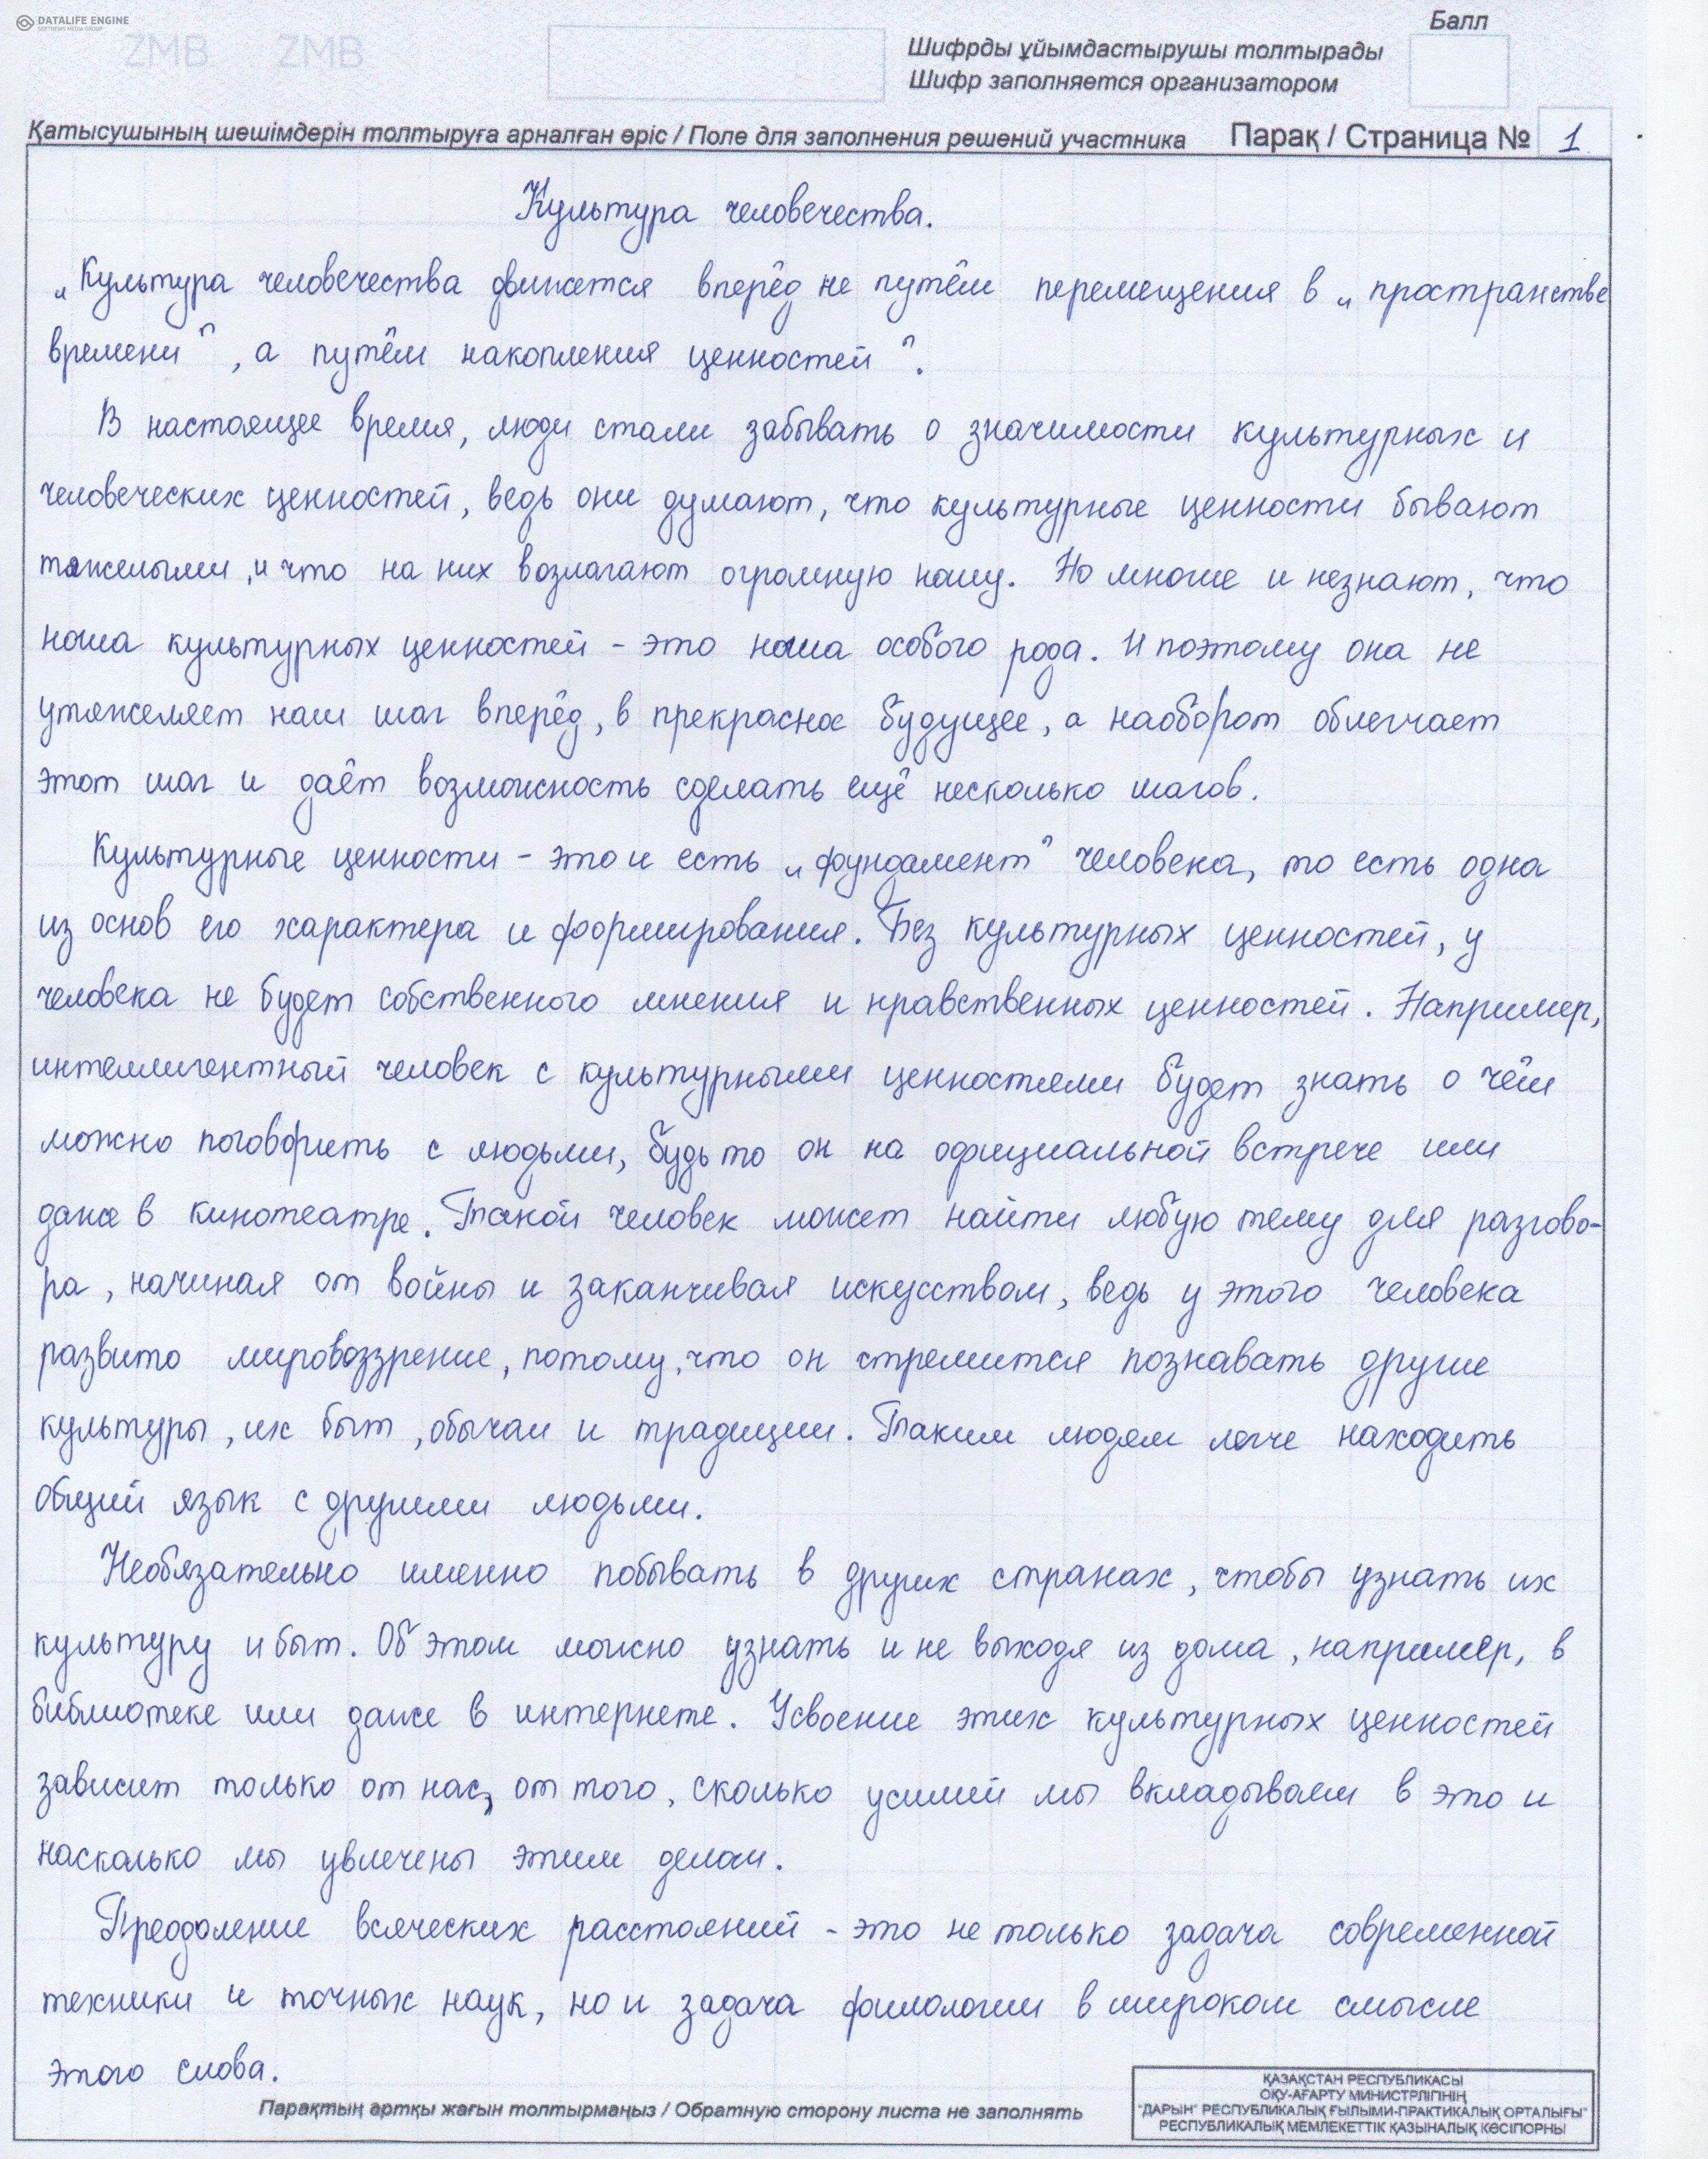 DATALIFE ENGINE
SOFTNEWS MEDIA GROUP
ZMB ZMB
Балл
Шифрды ұйымдастырушы толтырады
Шифр заполняется организатором
Қатысушының шешімдерін толтыруға арналған өріс / Поле для заполнения решений участника Парақ / Страница № 1
Культура человечества.
„Культура человечества движется вперёд не путём перемещения в „пространстве
времени“, а путём накопления ценностей“.
В настоящее время, люди стали забывать о значимости культурных и
человеческих ценностей, ведь они думают, что культурные ценности бывают
тяжелыми, и что на них возлагают огромную ношу. Но многие и незнают, что
ноша культурных ценностей - это ноша особого рода. И поэтому она не
утяжеляет наш шаг вперёд, в прекрасное будущее, а наоборот облегчает
этот шаг и даёт возможность сделать ещё несколько шагов.
Культурные ценности - это и есть „фундамент“ человека, то есть одна
из основ его характера и формирования. Без культурных ценностей, у
человека не будет собственного мнения и нравственных ценностей. Например,
интеллигентный человек с культурными ценностями будет знать о чём
можно поговорить с людьми, будь то он на официальной встрече или
даже в кинотеатре. Такой человек может найти любую тему для разгово-
ра, начиная от войны и заканчивая искусством, ведь у этого человека
развито мировоззрение, потому, что он стремится познавать другие
культуры, их быт, обычаи и традиции. Таким людям легче находить
общий язык с другими людьми.
Необязательно именно побывать в других странах, чтобы узнать их
культуру и быт. Об этом можно узнать и не выходя из дома, например, в
библиотеке или даже в интернете. Усвоение этих культурных ценностей
зависит только от нас, от того, сколько усилий мы вкладываем в это и
насколько мы увлечены этим делом.
Преодоление всяческих расстояний - это не только задача современной
техники и точных наук, но и задача филологии в широком смысле
этого слова.
Парақтың артқы жағын толтырмаңыз / Обратную сторону листа не заполнять
ҚАЗАҚСТАН РЕСПУБЛИКАСЫ
ОҚУ-АҒАРТУ МИНИСТРЛІГІНІҢ
"ДАРЫН" РЕСПУБЛИКАЛЫҚ ҒЫЛЫМИ-ПРАКТИКАЛЫҚ ОРТАЛЫҒЫ"
РЕСПУБЛИКАЛЫҚ МЕМЛЕКЕТТІК ҚАЗЫНАЛЫҚ КӘСІПОРНЫ